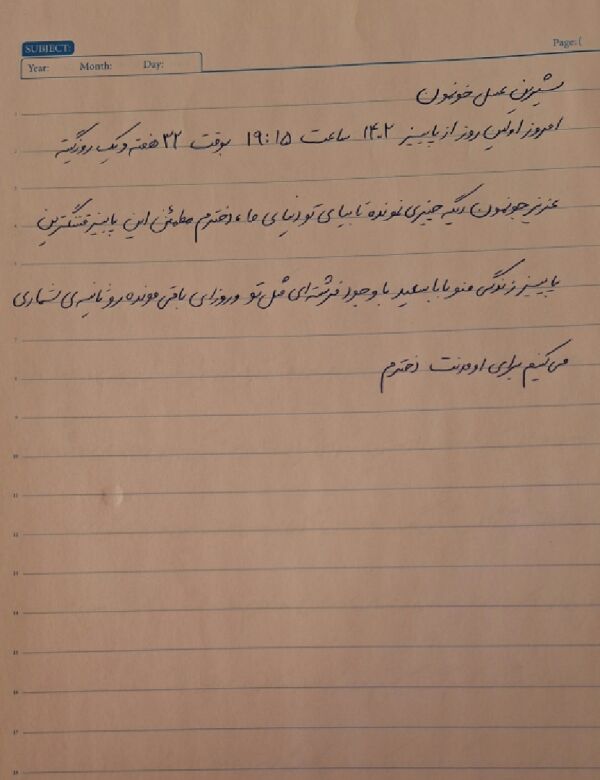 SUBJECT:
Page: (
Year: Month: Day:
شیرینِ عسل خونمون
امروز اولین روز از پاییز ۱۴۰۲ ساعت ۱۹:۱۵ بوقت ۳۲ هفته و یک روزگیته
عزیز جونمون دیگه چیزی نمونده تا بیای تو دنیای ما، دخترم مطمئن این پاییز قشنگترین
پاییز زندگی منو بابا سعید با وجود فرشته‌ای مثل تو و روزای باقی مونده رو ثانیه‌ی شماری
می‌کنیم برای اومدنت دخترم
1
2
3
4
5
6
7
8
9
10
11
12
13
14
15
16
17
18